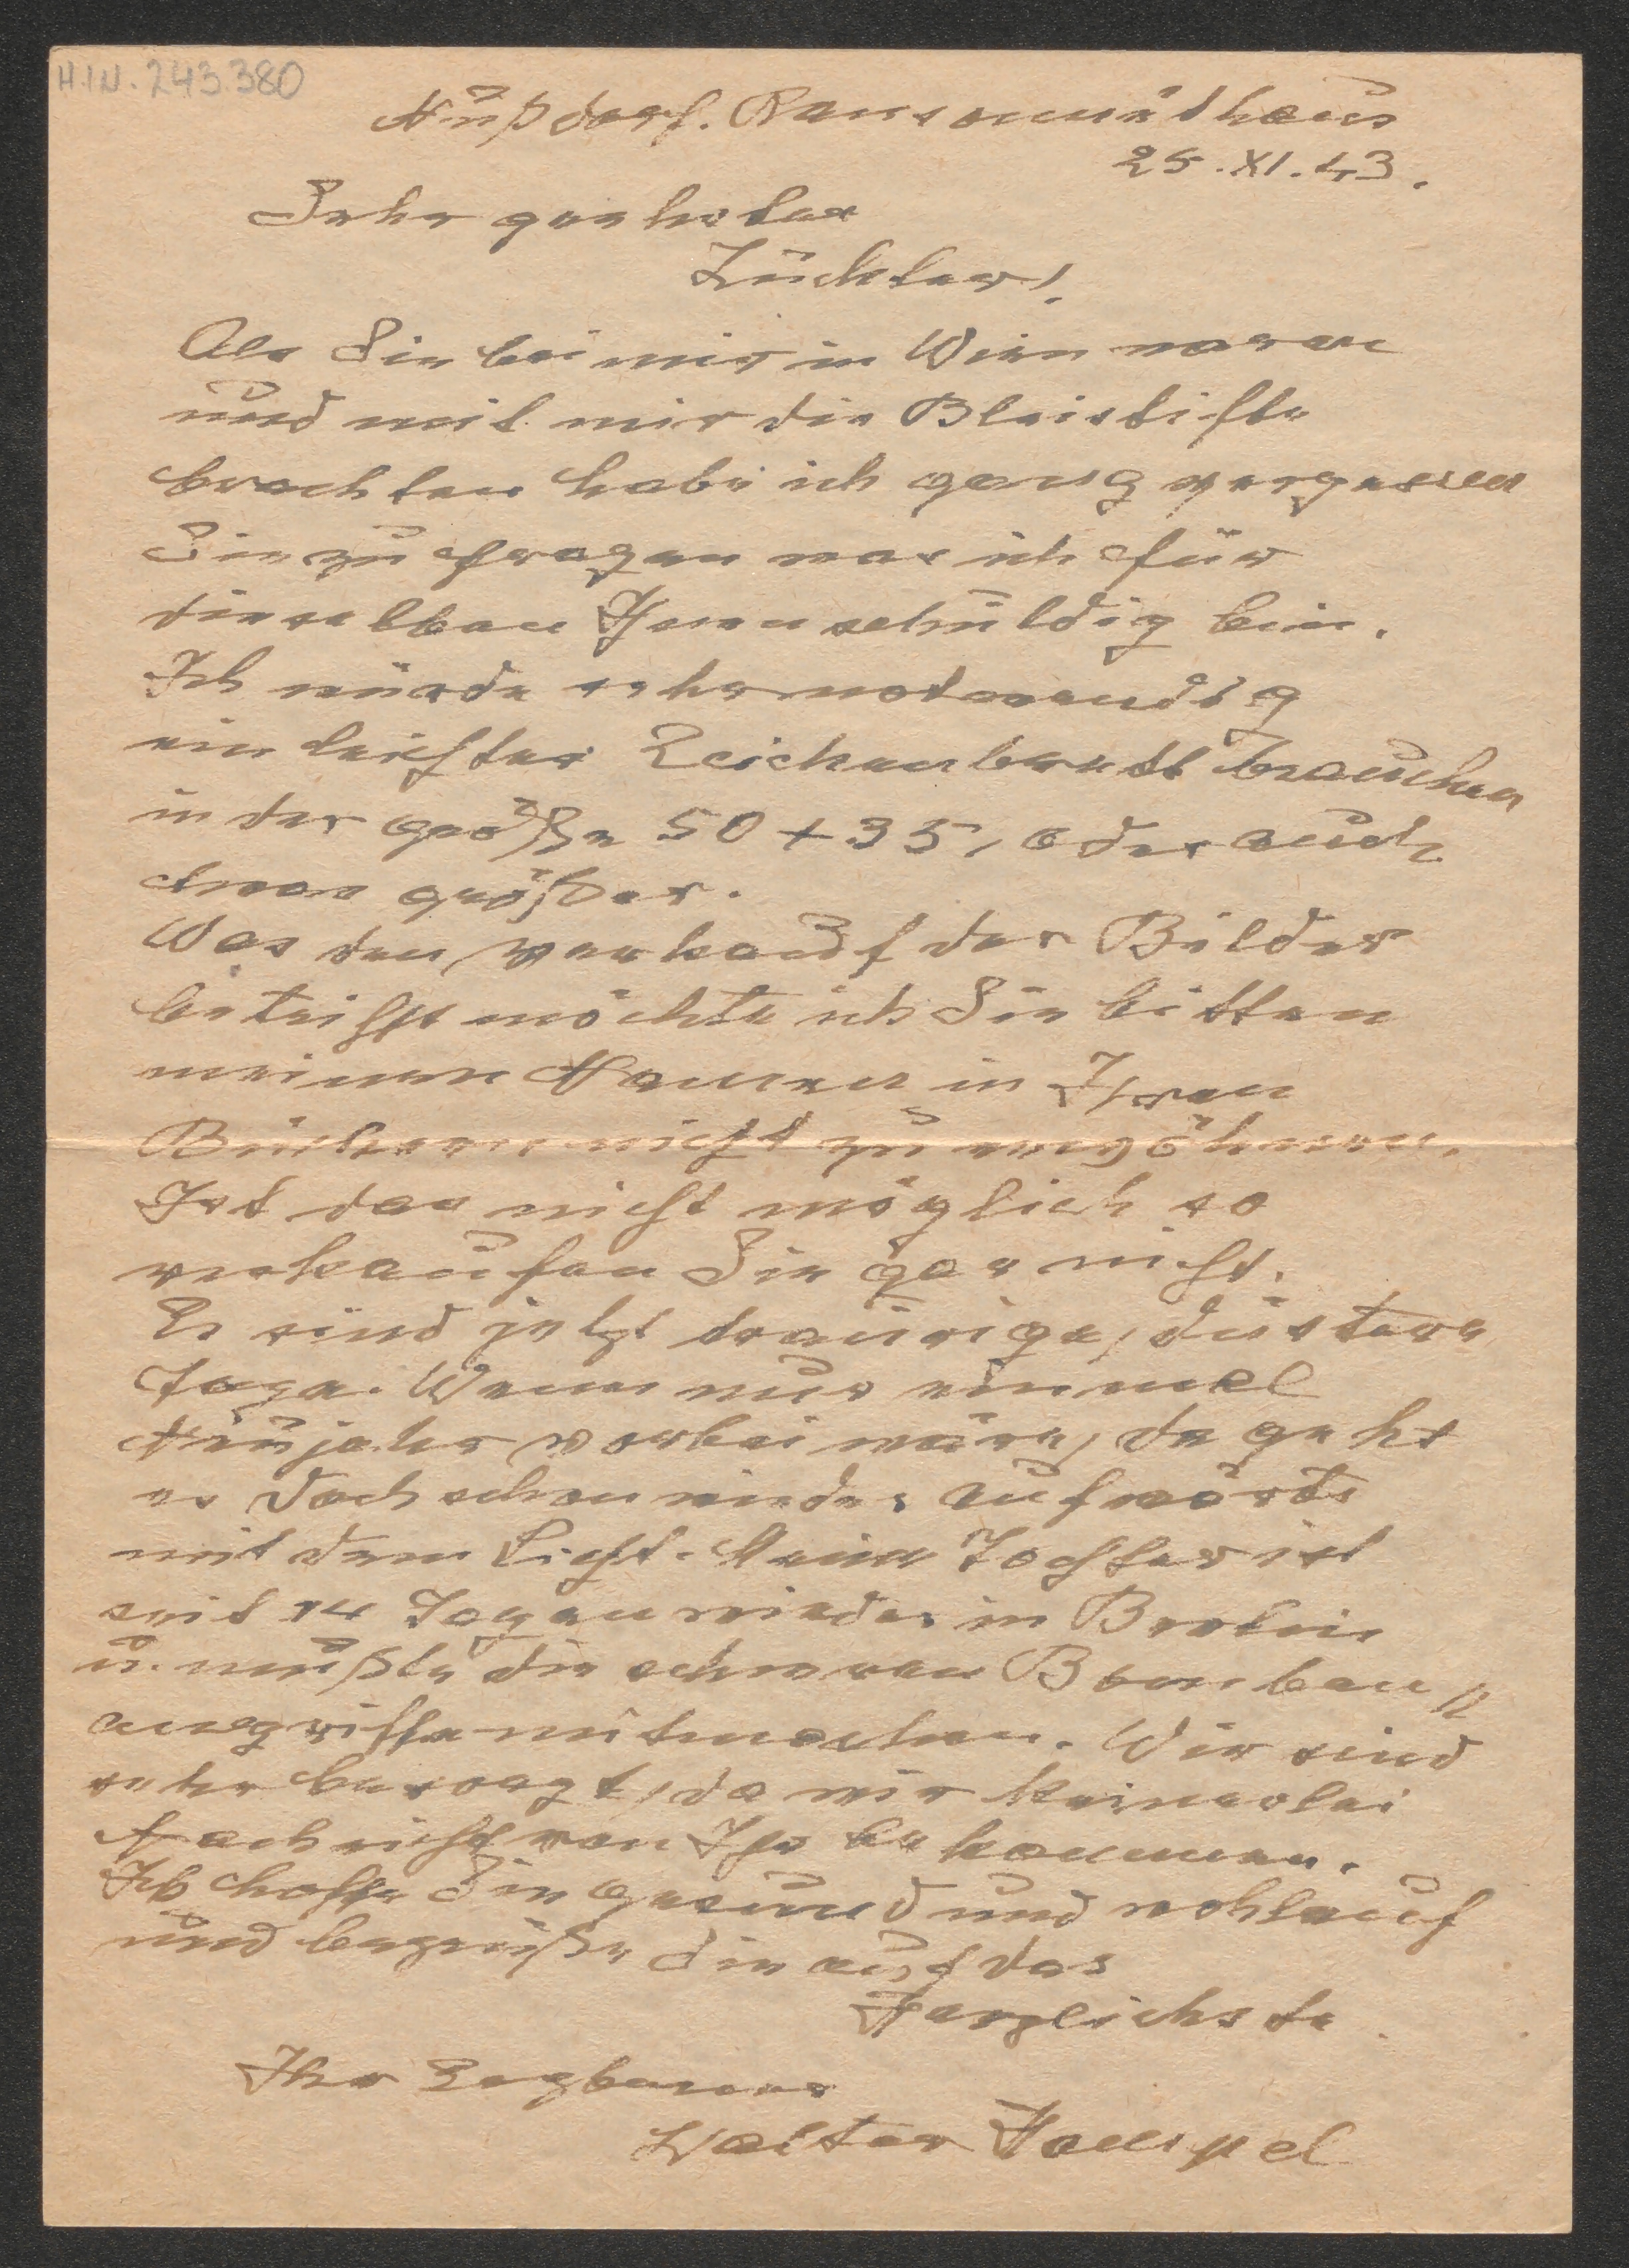 H.I.N. 243.380
Nußdorf. Ransonnethaus
25. XI. 43.
Sehr geehrter
Züchter!
Als Sie bei mir in Wien waren
und mit mir die Bleistifte
brachten habe ich ganz vergessen
Sie zu fragen was ich für
dieselben Ihnen schuldig bin.
Ich würde sehr notwendig
ein leichtes Zeichenbrett brauchen
in der größe 50 + 35, oder auch
etwas größer.
Was den verkauf der Bilder
betrifft möchte ich Sie bitten
meinen Namen in Ihren
Büchern nicht zu erwöhnen.
Ist das nicht möglich so
verkaufen Sie gar nicht.
Es sind jetzt traurige, düstere
Tage. Wenn nur einmal
Neujahr vorbei wäre, da geht
es doch schon wieder aufwärts
mit dem Licht. Meine Tochter ist
seit 14 Tagen wieder in Berlin
u. mußte die schweren Bomben //
angriffe mitmachen. Wir sind
sehr besorgt, da wir keinerlei
Nachricht von Ihr bekommen.
Ich hoffe Sie gesund und wohlauf
und begrüße Sie auf das
Herzlichste
Ihr Ergebener
Walter Hampel